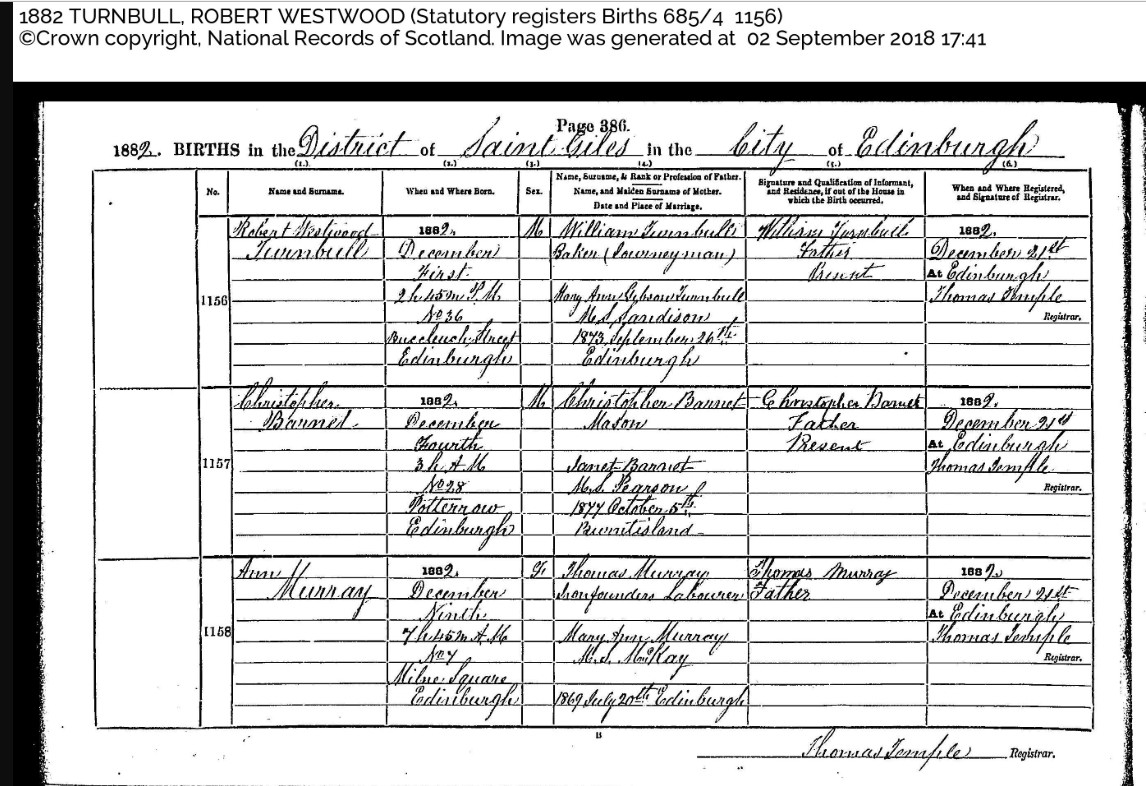 1882 TURNBULL, ROBERT WESTWOOD (Statutory registers Births 685/4 1156)
©Crown copyright, National Records of Scotland. Image was generated at 02 September 2018 17:41
Page 386.
1882. BIRTHS in the District of Saint Giles in the City of Edinburgh
(1.) (2.) (3.) (4.) (5.) (6.)
No.
Name and Surname.
When and Where Born.
Sex.
Name, Surname, & Rank or Profession of Father.
Name, and Maiden Surname of Mother.
Date and Place of Marriage.
Signature and Qualification of Informant,
and Residence, if out of the House in
which the Birth occurred.
When and Where Registered,
and Signature of Registrar.
1156
Robert Westwood
Turnbull
1882.
December
First
2h 45m P.M.
No 36
Buccleuch Street
Edinburgh
M
William Turnbull
Baker (Journeyman)
Mary Ann Gibson Turnbull
M.S. Sandison
1873 September 26th
Edinburgh
William Turnbull
Father
Present
1882.
December 21st
At Edinburgh
Thomas Temple
Registrar.
1157
Christopher
Barned
1882.
December
Fourth
3h A M
No 28
Potterrow
Edinburgh
M
Christopher Barnet
Mason
Janet Barnet
M.S. Pearson
1877 October 5th
Burntisland
Christopher Barnet
Father
Present
1882.
December 21st
At Edinburgh
Thomas Temple
Registrar.
1158
Ann
Murray
1882.
December
Ninth
7h 45m A.M
No 7
Milne Square
Edinburgh
F
Thomas Murray
Ironfounders Labourer
Mary Ann Murray
M.S. McKay
1869 July 20th Edinburgh
Thomas Murray
Father
1882.
December 21st
At Edinburgh
Thomas Temple
Registrar.
B
Thomas Temple Registrar.